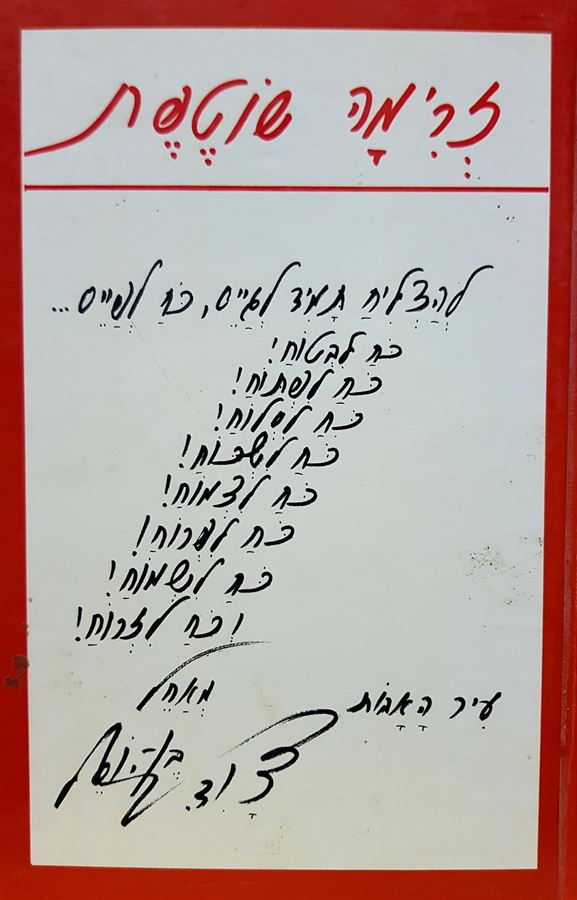 זְרִימָה שׁוֹטֶפֶת
לְהַצְלִיחַ תָּמִיד לְגַיֵּס, כֹּחַ לְפַיֵּס ...
כֹּחַ לִבְטוֹחַ!
כֹּחַ לִפְתוֹחַ!
כֹּחַ לִסְלוֹחַ!
כֹּחַ לִשְׁכּוֹחַ!
כֹּחַ לִצְמוֹחַ!
כֹּחַ לִפְרוֹחַ!
כֹּחַ לִשְׂמוֹחַ!
וְכֹחַ לִזְרוֹחַ!
מְאַחֵל
עִיר הָאָבוֹת